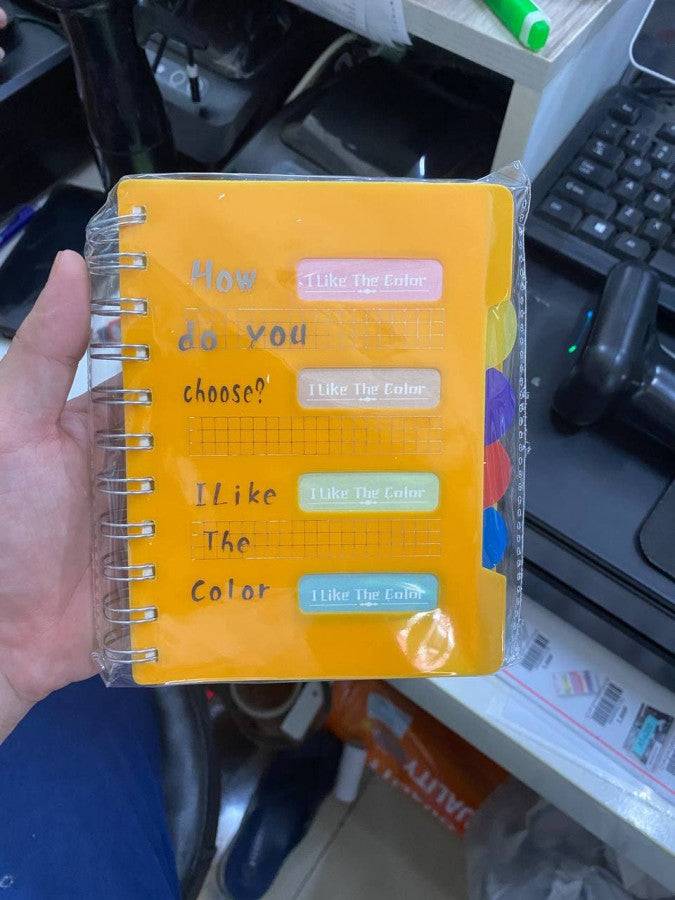 How
I Like The Color
do you
choose?
I Like The Color
I Like
I Like The Color
The
Color
I Like The Color
QUALITY